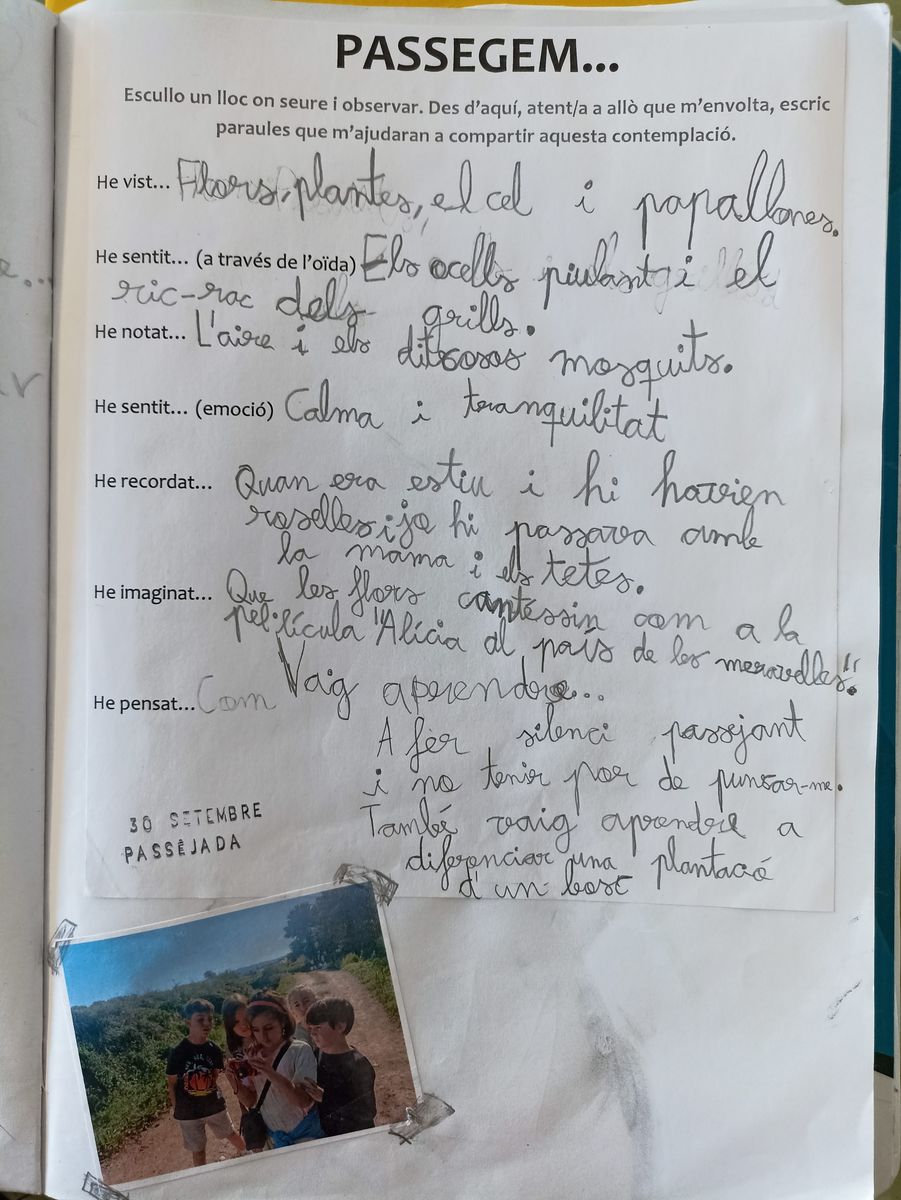 PASSEGEM...
Escullo un lloc on seure i observar. Des d'aquí, atent/a a allò que m'envolta, escric
paraules que m'ajudaran a compartir aquesta contemplació.
He vist... Flors, plantes, el cel i papallones.
He sentit... (a través de l'oïda) Els ocells piulant i el
ric-rac dels grills.
He notat... L'aire i els ditxosos mosquits.
He sentit... (emoció) Calma i tranquilitat
He recordat... Quan era estiu i hi havien
roselles i jo hi passava amb
la mama i els tetes.
He imaginat... Que les flors cantessin com a la
pel·lícula "Alícia al país de les meravelles".
He pensat... Com Vaig apendre...
A fer silenci passejant
i no tenir por de punxar-me.
També vaig aprendre a
diferenciar una plantació
d'un bosc
30 SETEMBRE
PASSEJADA